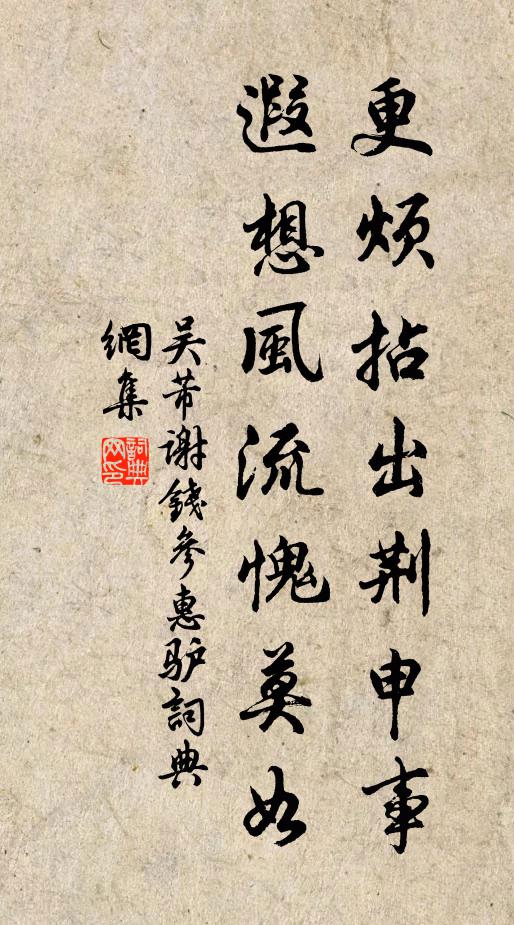 更煩拈出荆申事
遐想風流愧莫如
吴芾谢錢參惠驴詞典
網集
詞典
网印